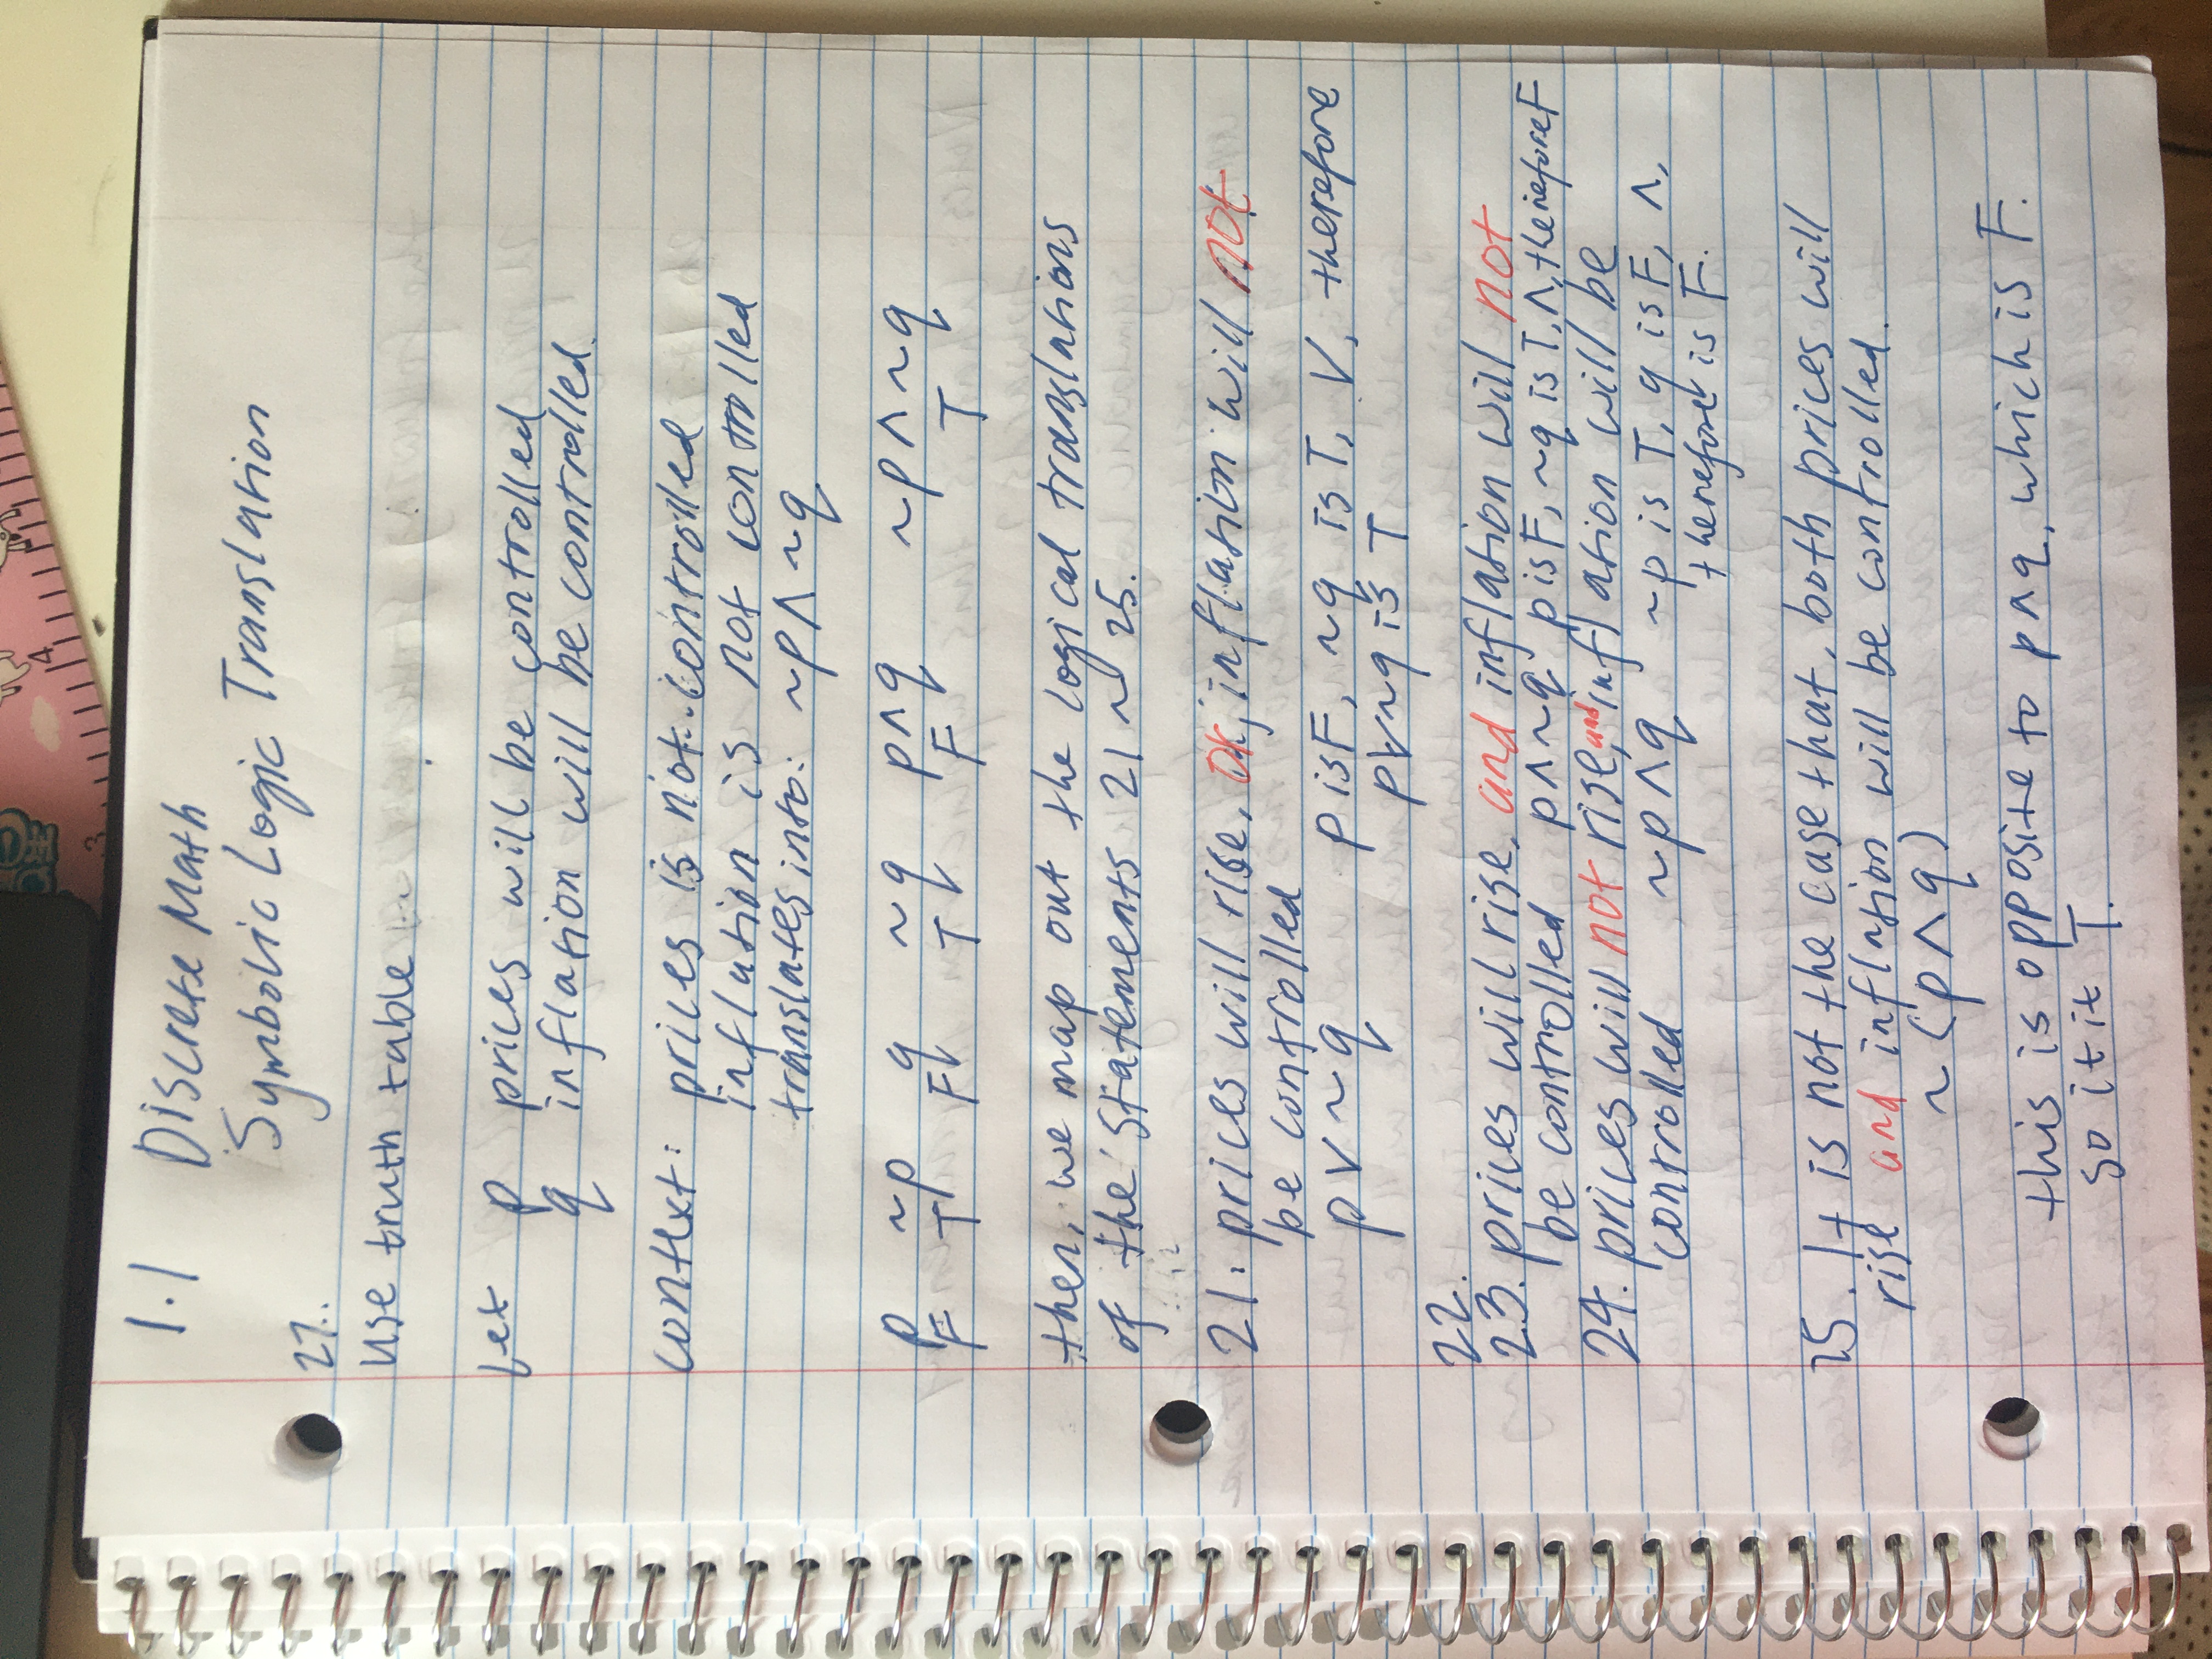 3
4
1.1 Discrete Math
Symbolic Logic Translation
27.
Use truth table
Let p prices will be controlled
q inflation will be controlled.
context: prices is not controlled
inflation is not controlled
translates into: ~p∧~q
p ~p q ~q p∧q ~p∧~q
F T F T F T
then, we map out the logical translations
of the statements 21 ~ 25.
21. prices will rise, or, inflation will not
be controlled
p∨~q p is F, ~q is T, ∨, therefore
p∨~q is T
22.
23. prices will rise, and inflation will not
be controlled p∧~q p is F, ~q is T, ∧, therefore F
24. prices will not rise, and inflation will be
controlled ~p∧q ~p is T, q is F, ∧,
therefore is F.
25. It is not the case that, both prices will
rise and inflation will be controlled.
~(p∧q)
this is opposite to p∧q, which is F.
so it it T.